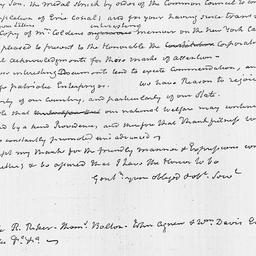 my Son, the Medal Struck by order of the Common Council to com
pletion of Erie Canal; also for your having since trans
Copy of Mr. Coldens memoir on the New York Ca
interesting
pleased to present to the Honorable the Corporat
acknowledgments for these marks of attention.
interesting Documents tend to excite Commendation, an
patriotic Enterprize. we have Reason to rejoic
of our Country, and particularly of our State.
that our national welfare may contin
by a kind Providence, and therefore that Thankfulness
constantly promoted and advanced
my thanks for the friendly manner & Expressions
and be assured that I have the Honor to be
Gentn. your obliged & obt. Servt.
R. Riker. Thoms. Bolton. John Agnew & Wm. Davis E
&c. &c.